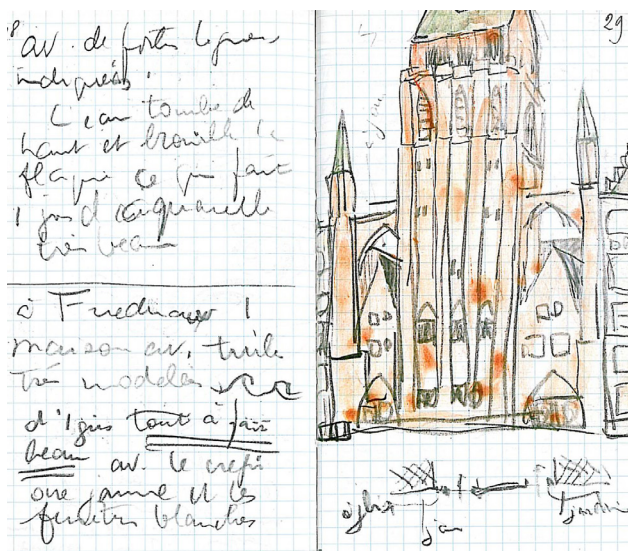 av. de fortes lignes
indiquées.
L'eau tombe de
haut et brouille le
flaque ce qui fait
1 jus d'aquarelle
très beau
à Friednau 1
maison av. tuile
très modelée
d'1 gris tout à fait
beau av. le crépi
ocre jaune et les
fenêtres blanches
29
église
jardin